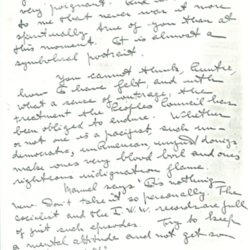 very poignant. And
to me that never was it more
spiritually true of you than at
this moment. It is almost a
symbolical portrait.
You cannot think, Auntie,
how I have felt and with
what a sense of outrage, the
treatment the Peoples Council has
been obliged to endure. Whether
or not one is a pacifist, such un-
democratic, unAmerican, unjust doings,
make one's very blood boil and one's
righteous indignation flame.
Manuel says its nothing
new. Don't take it so personally. The
socialist and the I.W.W. records are full
of just such episodes. Try to keep
a mental attitude and not get